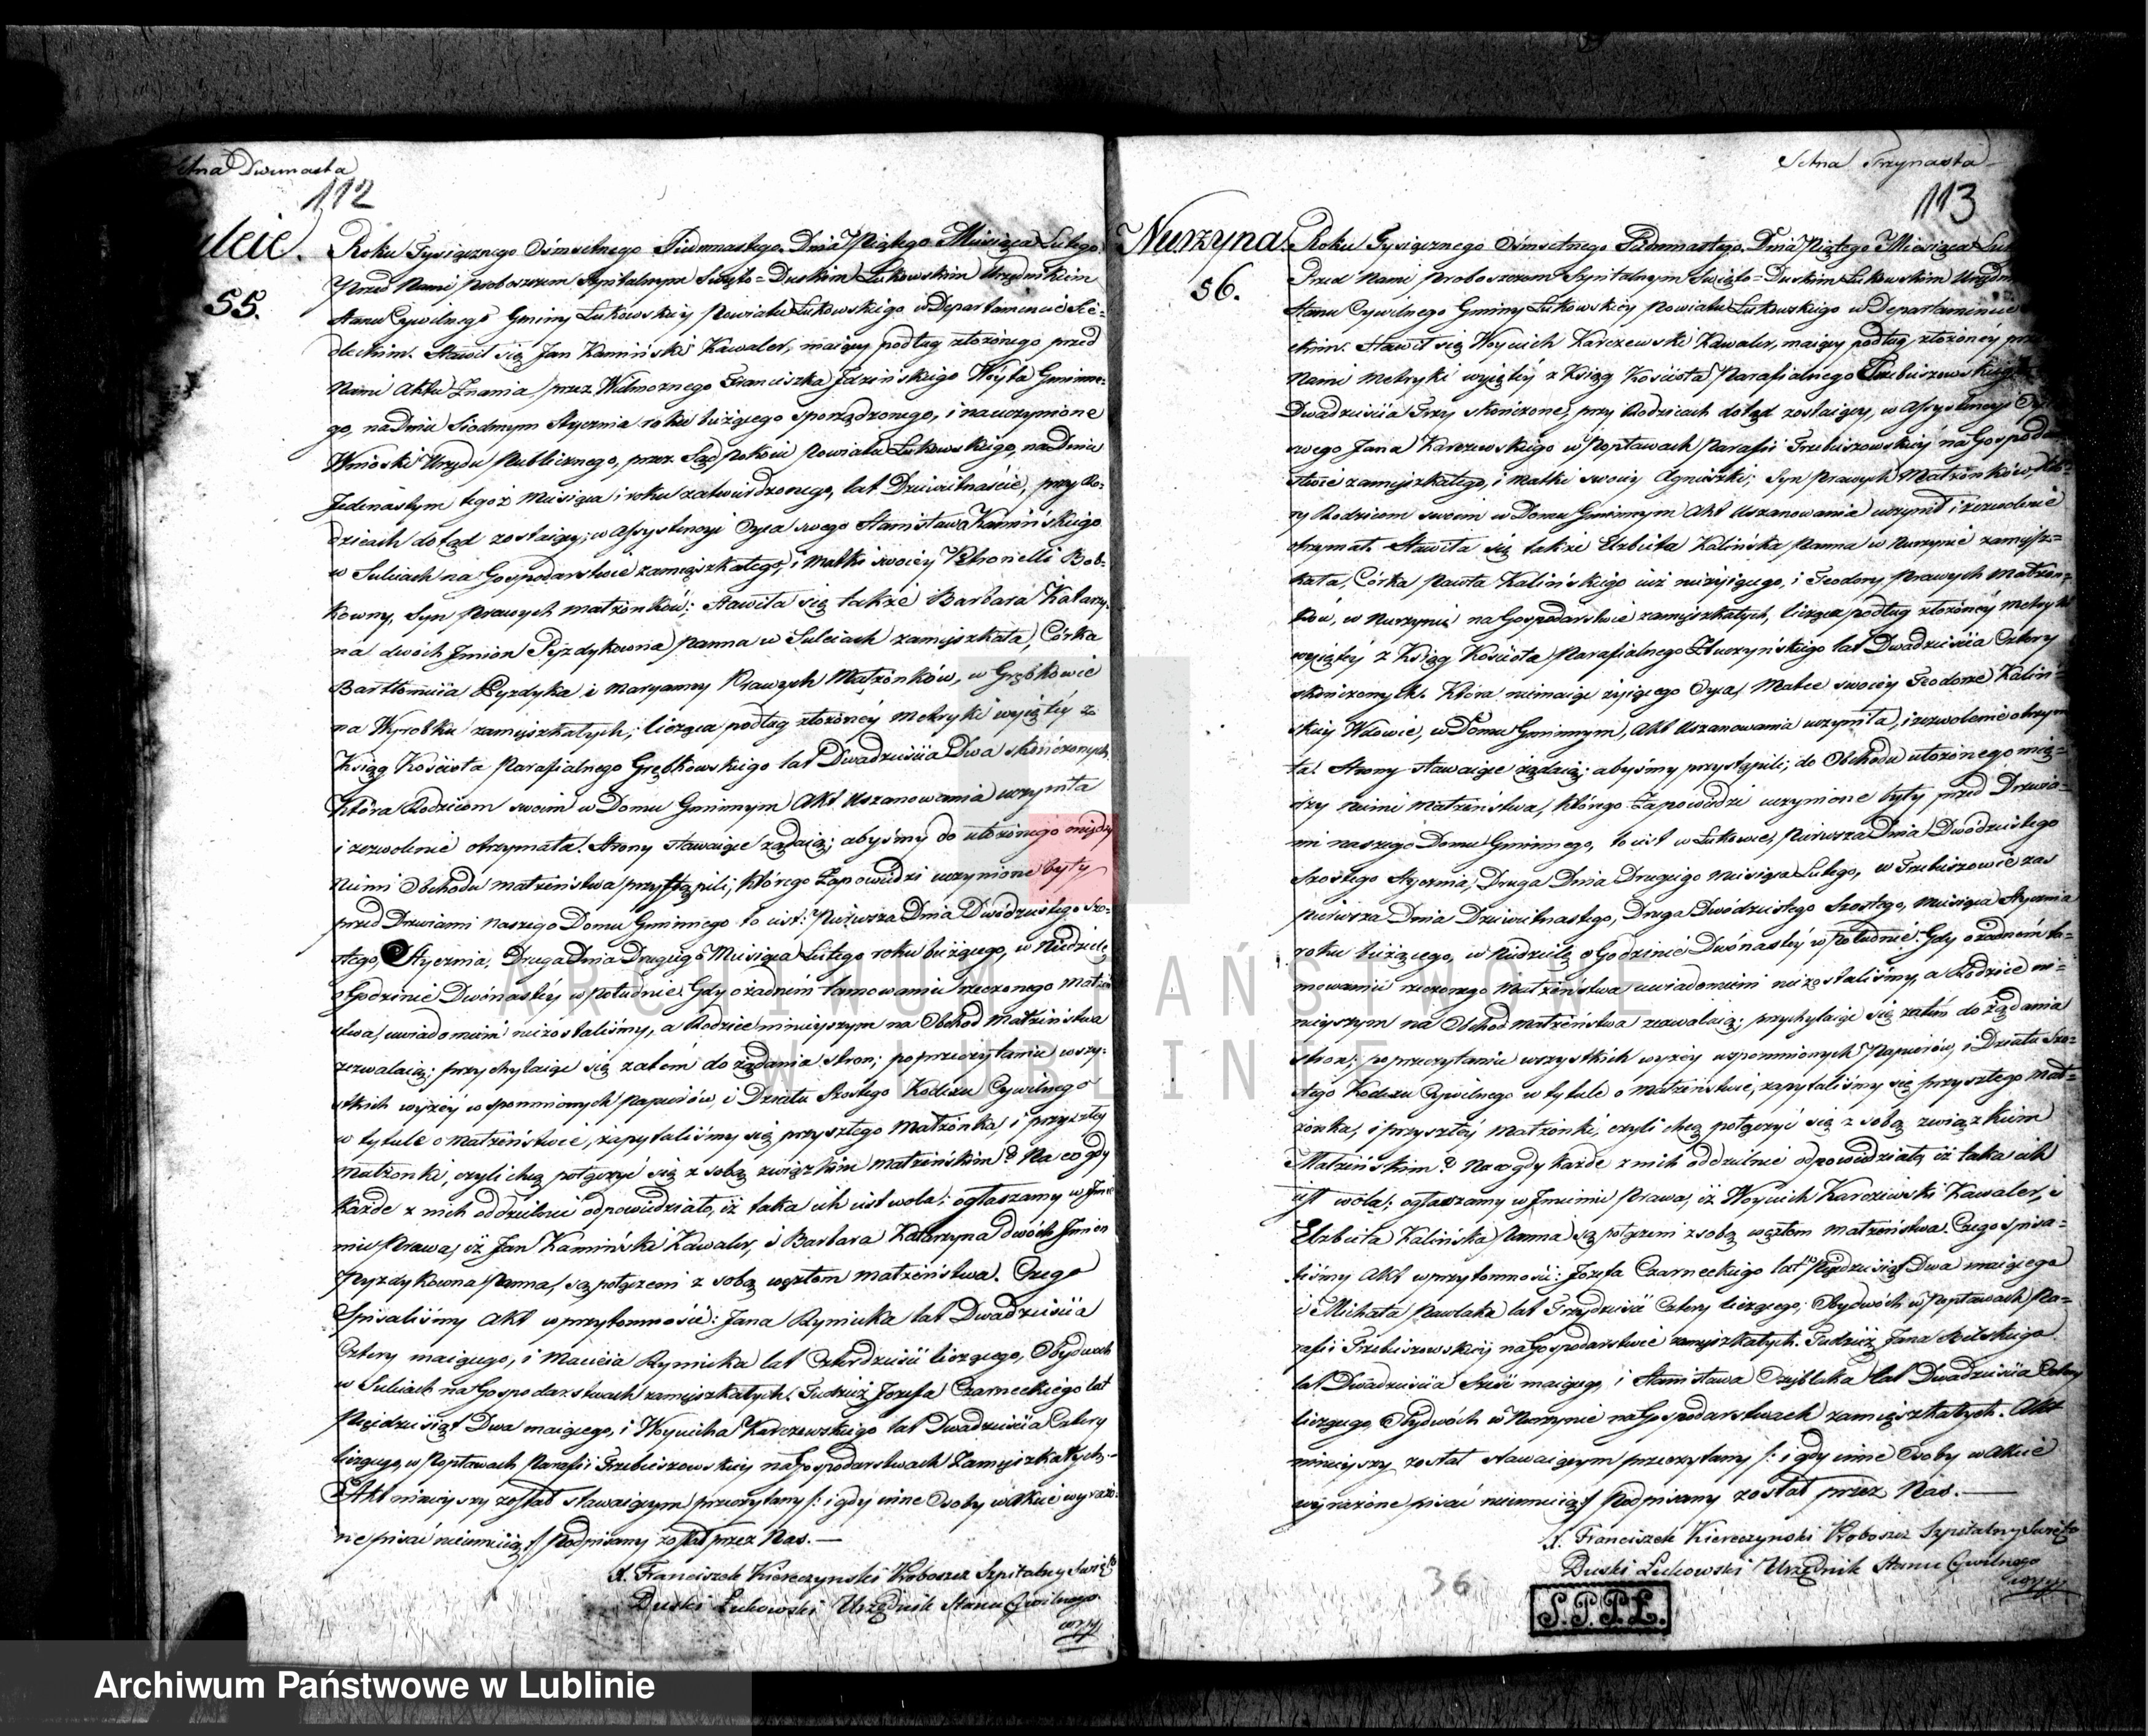 Setna Dwunasta
112
uleie.
55.
Roku Tysiącznego Ośmsetnego Siedmnastego. Dnia Piątego Miesiąca Lutego.
Przed Nami Proboszczem Szpitalnym Święto=Duskim Łukowskim Urzędnikiem
Stanu Cywilnego Gminy Łukowskiey Powiatu Łukowskiego w Departamencie Sie=
dleckim. Stawił się Jan Kamiński Kawaler, maiący podług złożonego przed
Nami Aktu Znania przez Wielmożnego Franciszka Wóyta Gminne=
go, na Dniu Siodmym Stycznia roku bieżącego sporządzonego, i na uczynione
Wnioski Urzędu Publicznego, przez Sąd Pokoiu Powiatu Łukowskiego, na Dniu
Jedenastym tegoż Miesiąca i roku zatwierdzonego, lat Dziewietnaście, przy Ro=
dzicach dotąd zostaiący; w Assystencyi Oyca swego Stanisława Kamińskiego
w Suleiach na Gospodarstwie zamięszkałego, i Matki swoiey Petronelli Bob=
kowny, Syn Prawych małżonków; Stawiła się także Barbara Katarzy=
na dwoch Jmion Pyzdykowna Panna w Suleiach zamięszkała, Córka
Bartłomieia Pyzdyka i Maryanny Prawych Małżonków, w Grębkowie
na Wyrobku zamięszkałych; licząca podług złożoney Metryki wyiętéy z
Ksiąg Kościoła Parafialnego Grębkowskiego lat Dwadzieścia Dwa skończonych.
Która Rodzicom swoim w Domu Gminnym Akt Uszanowania uczyniła
i zezwolenie otrzymała. Strony stawaiące żądaią; abyśmy do ułożonego między
niemi Obchodu małżeństwa przystąpili; którego Zapowiedzi uczynione były
przed Drzwiami naszego Domu Gminnego to iest: Pierwsza Dnia Dwódziestego Szo=
stego, Stycznia, Druga Dnia Drugiego Miesiąca Lutego roku bieżącego, w Niedziele
o Godzinie Dwónastéy w południe. Gdy o żadnem tamowaniu rzeczonego Małżeń
stwa, uwiadomieni niezostaliśmy, a Rodzice ninieyszym na Obchod Małżeństwa
zezwalaią; przychylaiąc się zatem do żądania stron; po przeczytaniu wszy=
stkich wyżéy wspomnionych Papierów, i Działu Szostego Kodexu Cywilnego
w tytule o Małżeństwie, zapytaliśmy się przyszłego Małżonka, i przyszłéy
Małżonki, czyli chcą połączyć się z sobą związkiem małżeńskim? Na co gdy
Każde z nich oddzielnie odpowiedziało, iż taka ich iest wola; ogłaszamy w Jmie
niu Prawa, iż Jan Kamiński Kawaler, i Barbara Katarzyna dwóch Jmion
Pyzdykowna Panna, są połączeni z sobą węzłem małżeństwa. Czego
Spisaliśmy Akt w przytomności: Jana Rymieka lat Dwadzieścia
Cztery maiącego, i Macieia Rymieka lat Czterdzieści liczącego, Obydwoch
w Suleiach na Gospodarstwach zamięszkałych. Tudzież Jozefa Czarneckiego lat
Pięćdziesiąt Dwa maiącego, i Woyciecha Karczewskiego lat Dwadzieścia Cztery
liczącego, w Popławach Parafii Trzebieszowskiey na Gospodarstwach Zamięszkałych.
Akt ninieyszy został stawaiącym przeczytany /: i gdy inne Osoby w Akcie wyrażo
ne pisać nieumieią :/ Podpisany został przez Nas. —
X. Franciszek Kiereczynski Proboszcz Szpitalny Swięto
Duski Łukowski Urzędnik Stanu Cywilnego
mpp
Setna Trzynasta
113
Nurzyna.
56.
Roku Tysiącznego Ośmsetnego Siedmnastego. Dnia Piątego Miesiąca Lut
Przed Nami Proboszczem Szpitalnym Święto=Duskim Łukowskim Urzędni
Stanu Cywilnego Gminy Łukowskiéy Powiatu Łukowskiego w Departamencie
ckim. Stawił się Woyciech Karczewski Kawaler, maiący podług złożonéy prz
Nami Metryki wyiętéy z Ksiąg Kościoła Parafialnego Trzebieszowskieg
Dwadzieścia Trzy skończone, przy Rodzicach dotąd zostaiący, w Assystencyi
swego Jana Karczewskiego w Popławach Parafii Trzebieszowskiey na Gospodar
stwie zamięszkałego, i Matki swoiey Agnieszki; Syn Prawych Małżonków, Któ=
ry Rodzicom swoim w Domu Gminnym Akt Uszanowania uczynił i zezwolenie
otrzymał. Stawiła się także Elżbieta Kalińska Panna w Nurzynie zamięsz=
kała, Córka Pawła Kalińskiego iuż nieżyiącego, i Teodory Prawych Małżon=
ków, w Nurzynie na Gospodarstwie zamięszkałych, licząca podług złożonéy metryki
wyiętéy z Ksiąg Kościoła Parafialnego Zbuczyńskiego lat Dwadzieścia Cztery
skończonych. Która niemaiąc żyiącego Oyca, Matce swoiéy Teodorze Kaliń=
skiey Wdowie, w Domu Gminnym, Akt Uszanowania uczyniła, i zezwolenie otrzym
ła. Strony stawaiące żądaią; abyśmy przystąpili; do Obchodu ułożonego mię=
dzy niemi Małżeństwa, którego Zapowiedzi uczynione były przed Drzwia=
mi naszego Domu Gminnego, to iest w Łukowie, Pierwsza Dnia Dwódziestego
Szostego Stycznia, Druga Dnia Drugiego Miesiąca Lutego, w Trzebieszowie zaś
Pierwsza Dnia Dziewietnastego, Druga Dwódziestego Szostego, Miesiąca Stycznia
roku bieżącego, w Niedzielę o Godzinie Dwónastéy w południe. Gdy o żadném ta=
mowaniu rzeczonego Małżeństwa uwiadomieni niezostaliśmy, a Rodzice ni=
nieyszym na Obchod Małżeństwa zezwalaią; przychylaiąc się zatém do żądania
stron; po przeczytaniu wszystkich wyżéy wspomnionych Papierów, i Działu Szo=
stego Kodexu Cywilnego w tytule o Małżeństwie, zapytaliśmy się przyszłego Mał=
żonka, i przyszłéy Małżonki, czyli chcą połączyć się z sobą związkiem
Małżeńskim? Na co gdy każde z nich oddzielnie odpowiedziało, iż taka ich
iest wola; ogłaszamy w Jmieniu Prawa, iż Woyciech Karczewski Kawaler, i
Elżbieta Kalińska Panna są połączeni z sobą węzłem małżeństwa. Czego spisa=
liśmy Akt w przytomności: Jozefa Czarneckiego lat Pięćdziesiąt Dwa maiącego
i Michała Pawlaka lat Trzydzieści Cztery liczącego; Obydwóch w Popławach Pa=
rafii Trzebieszowskiéy na Gospodarstwie zamięszkałych. Tudzież Jana
lat Dwadzieścia Sześć maiącego, i Stanisława lat Dwadzieścia Cztery
liczącego, Obydwóch w Nurzynie na Gospodarstwach zamięszkałych. Akt
ninieyszy został stawaiącym przeczytany /: i gdy inne Osoby w Akcie
wyrażone pisać nieumieią :/ Podpisany został przez Nas. —
X. Franciszek Kiereczynski Proboszcz Szpitalny Święto
Duski Łukowski Urzędnik Stanu Cywilnego
mpp
36
S.P.P.L.
ARCHIWUM PAŃSTWOWE
W LUBLINIE
Archiwum Państwowe w Lublinie